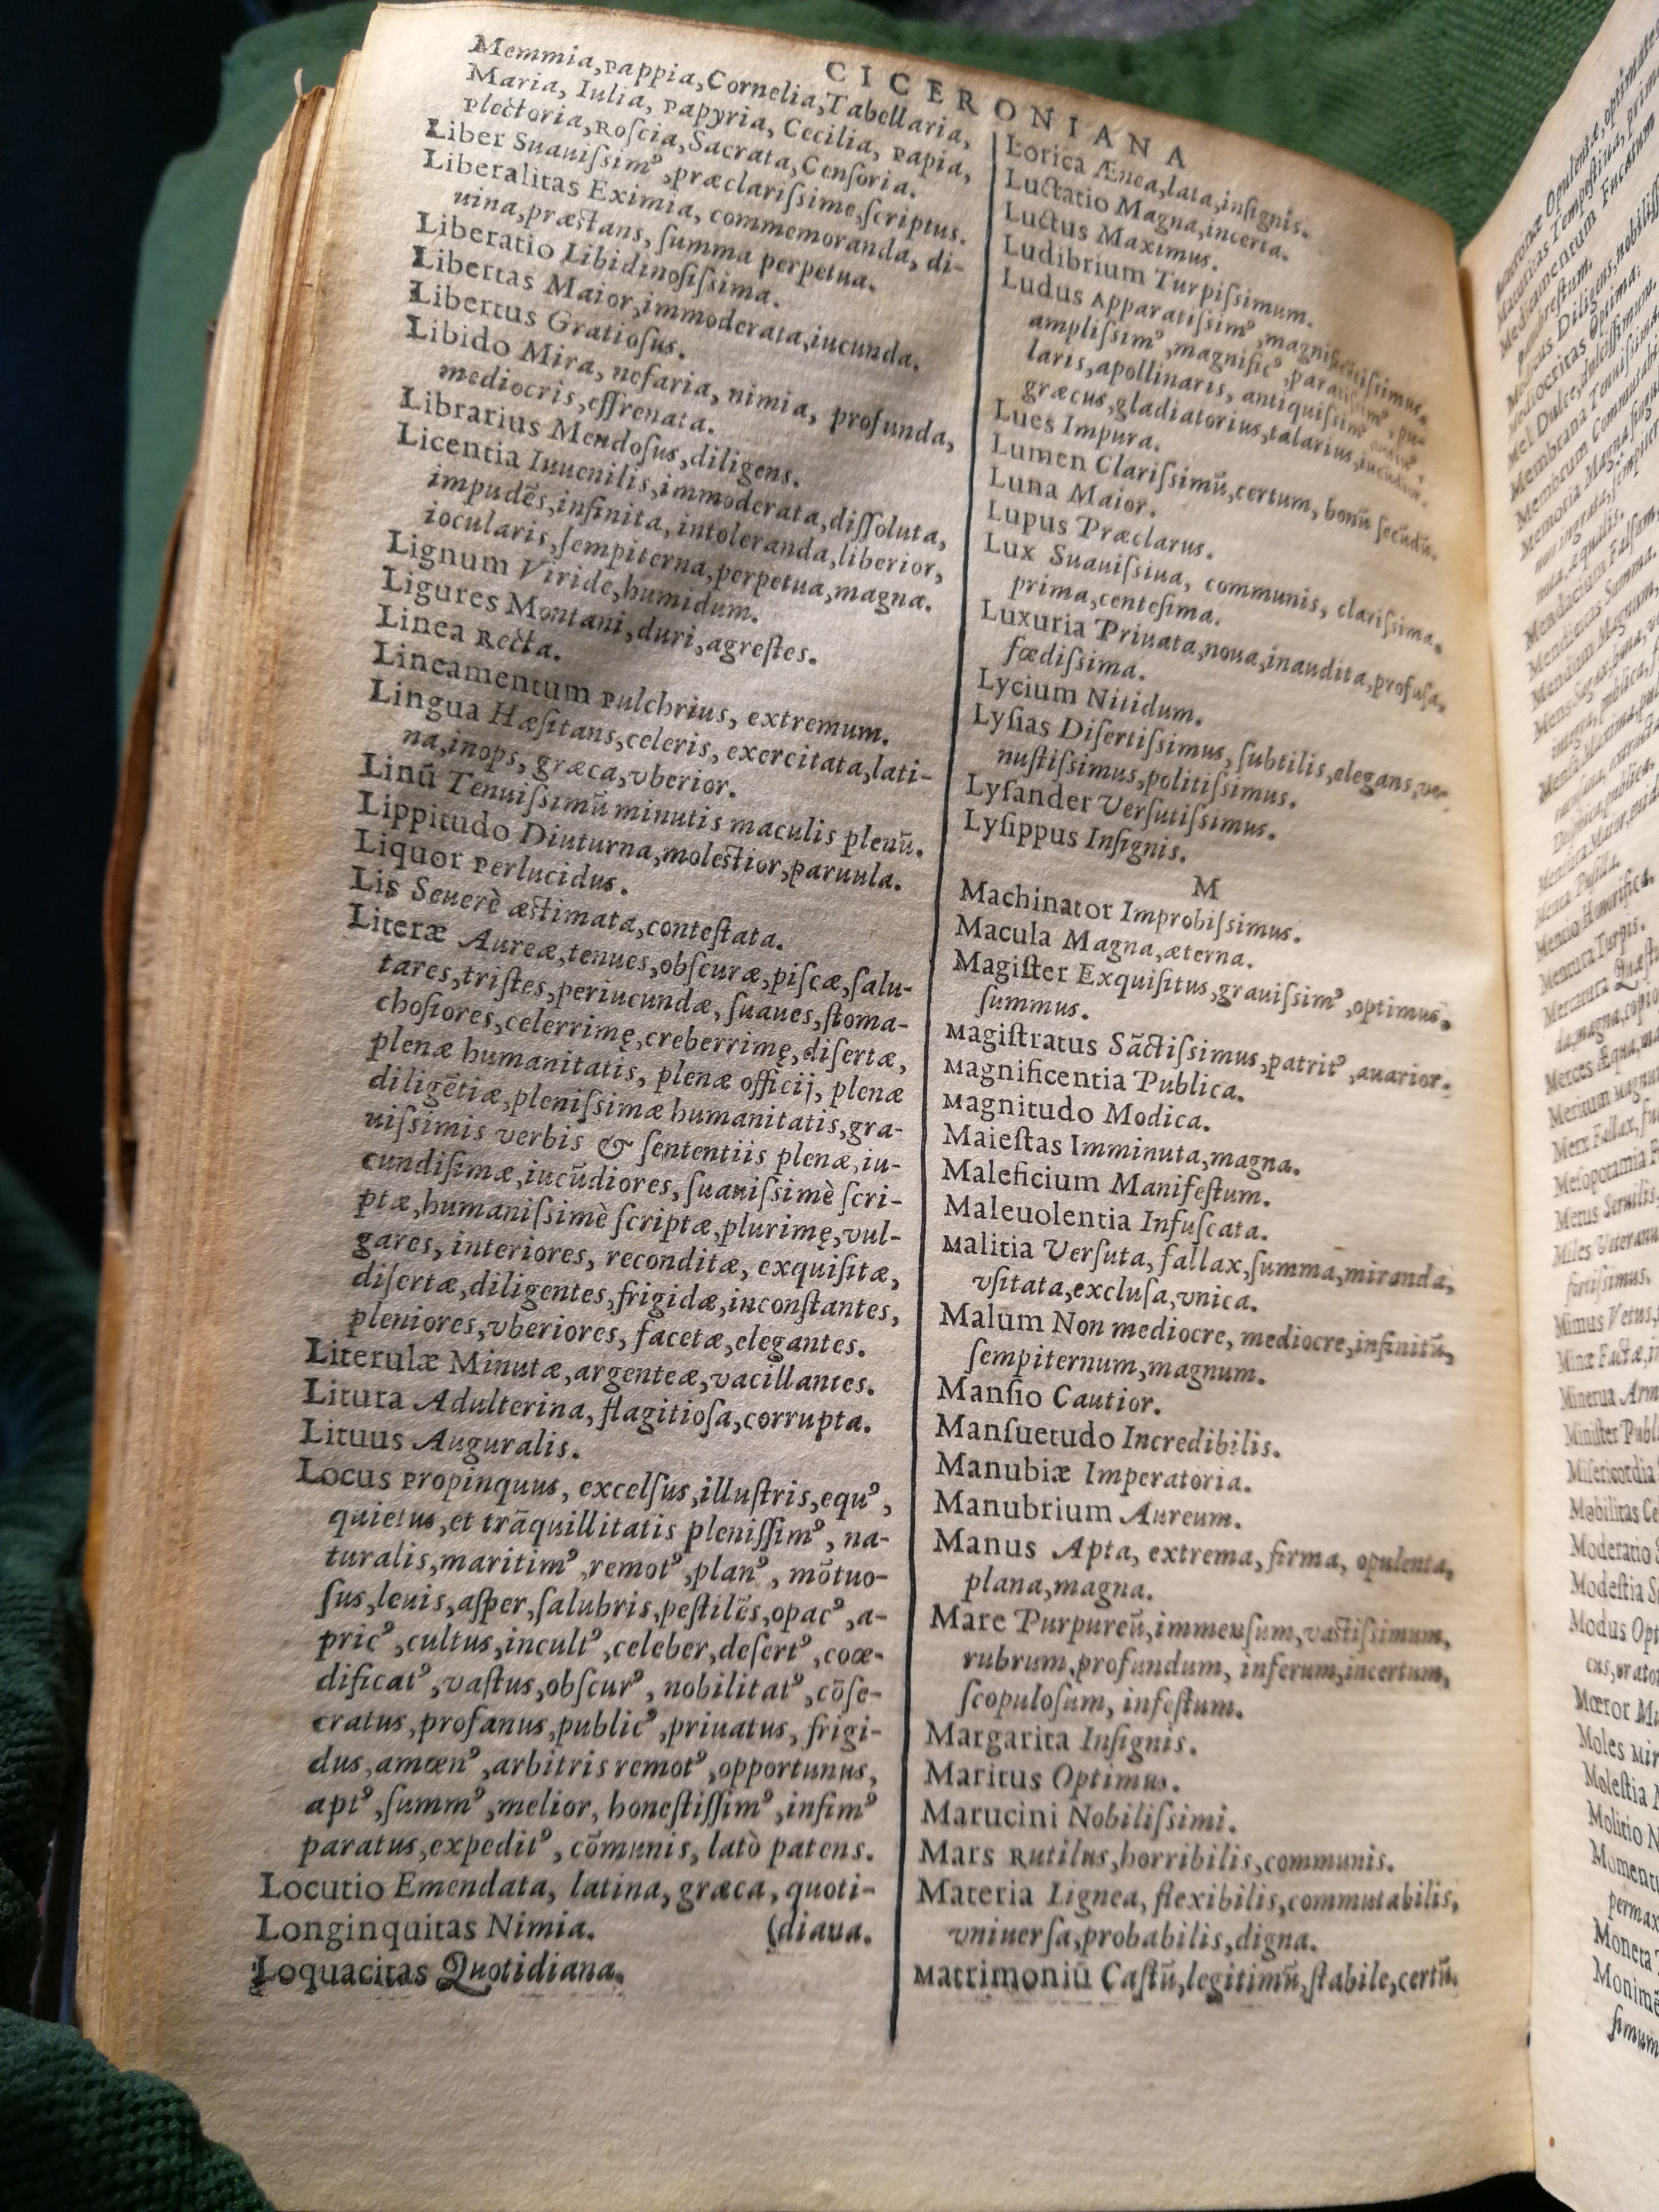 CICERONIANA
Memmia,pappia,Cornelia,Tabellaria,
Maria, Iulia, papyria, Cecilia, papia,
plectoria,Roſcia,Sacrata,Cenſoria.
Liber Suauiſsimꝰ,præclariſsime,ſcriptus.
Liberalitas Eximia, commemoranda, di-
uina,præstans, ſumma perpetua.
Liberatio Libidinoſiſsima.
Libertas Maior,immoderata,iucunda.
Libertus Gratioſus.
Libido Mira, nefaria, nimia, profunda,
mediocris,effrenata.
Librarius Mendoſus,diligens.
Licentia Iuuenilis,immoderata,diſſoluta,
impudẽs,infinita, intoleranda,liberior,
iocularis,ſempiterna,perpetua,magna.
Lignum Viride,humidum.
Ligures Montani,duri,agreſtes.
Linea Recta.
Lineamentum pulchrius, extremum.
Lingua Hæſitans,celeris, exercitata,lati-
na,inops, græca,vberior.
Linũ Tenuiſsimũ minutis maculis plenũ.
Lippitudo Diuturna,molestior,paruula.
Liquor perlucidus.
Lis Seuerè æstimata,conteſtata.
Literæ Aureæ,tenues,obſcuræ,piſcæ,ſalu-
tares,triſtes,periucundæ, ſuaues,ſtoma-
choſiores,celerrimę,creberrimę,diſertæ,
plenæ humanitatis, plenæ officij, plenæ
diligẽtiæ,pleniſsimæ humanitatis,gra-
uiſsimis verbis & ſententiis plenæ,iu-
cundiſimæ,iucũdiores, ſuauiſsimè ſcri-
ptæ,humaniſsimè ſcriptæ,plurimę,vul-
gares, interiores, reconditæ, exquiſitæ,
diſertæ,diligentes,frigidæ,inconſtantes,
pleniores,vberiores, facetæ,elegantes.
Literulæ Minutæ,argenteæ,vacillantes.
Litura Adulterina, flagitioſa,corrupta.
Lituus Auguralis.
Locus propinquus, excelſus,illuſtris,equꝰ,
quietus,et trãquillitatis pleniſſimꝰ, na-
turalis,maritimꝰ,remotꝰ,planꝰ, mõtuo-
ſus,leuis,aſper,ſalubris,peſtilẽs,opacꝰ,a-
pricꝰ,cultus,incultꝰ,celeber,deſertꝰ,coæ-
dificatꝰ,vaſtus,obſcurꝰ, nobilitatꝰ,cõſe-
cratus,profanus,publicꝰ,priuatus, frigi-
dus,amœnꝰ,arbitris remotꝰ,opportunus,
aptꝰ,ſummꝰ,melior, honeſtiſſimꝰ,infimꝰ
paratus,expeditꝰ, cõmunis, latò patens.
Locutio Emendata, latina,græca, quoti-
Longinquitas Nimia. (diaua.
Loquacitas Quotidiana.
Lorica Ænea,lata,inſignis.
Luctatio Magna,incerta.
Luctus Maximus.
Ludibrium Turpiſsimum.
Ludus Apparatiſsimꝰ,magnificentiſsimus,
ampliſsimꝰ,magnificꝰ,paratiſsimꝰ,pu-
laris,apollinaris, antiquiſsimꝰ
græcus,gladiatorius,talarius,iucũdus.
Lues Impura.
Lumen Clariſsimũ,certum, bonũ ſecũdũ.
Luna Maior.
Lupus Præclarus.
Lux Suauiſsiua, communis, clariſsima.
prima,centeſima.
Luxuria Priuata,noua,inaudita,profuſa,
fœdiſsima.
Lycium Nitidum.
Lyſias Diſertiſsimus, ſubtilis,elegans,ve-
nuſtiſsimus,politiſsimus.
Lyſander Verſutiſsimus.
Lyſippus Inſignis.
M
Machinator Improbiſsimus.
Macula Magna,æterna.
Magiſter Exquiſitus,grauiſsimꝰ,optimus.
ſummus.
Magiſtratus Sãctiſsimus,patritꝰ,auarior.
Magnificentia Publica.
Magnitudo Modica.
Maieſtas Imminuta,magna.
Maleficium Manifeſtum.
Maleuolentia Infuſcata.
Malitia Verſuta, fallax,ſumma,miranda,
vſitata,excluſa,vnica.
Malum Non mediocre, mediocre,infinitũ,
ſempiternum,magnum.
Manſio Cautior.
Manſuetudo Incredibilis.
Manubiæ Imperatoria.
Manubrium Aureum.
Manus Apta, extrema, firma, opulenta,
plana,magna.
Mare Purpureũ,immenſum,vastiſsimum,
rubrum,profundum, inferum,incertum,
ſcopuloſum, infeſtum.
Margarita Inſignis.
Maritus Optimus.
Marucini Nobiliſsimi.
Mars Rutilus,horribilis,communis.
Materia Lignea, flexibilis,commutabilis,
vniuerſa,probabilis,digna.
Matrimoniũ Caſtũ,legitimũ,ſtabile,certũ.